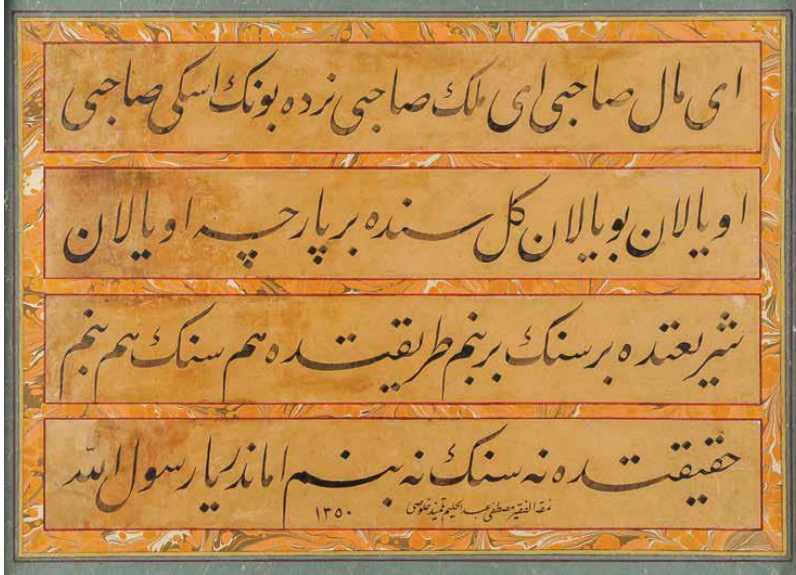 ای مال صاحبی ای ملك صاحبی نرده بونك اسكی صاحبی
او یالان بو یالان كل سنده بر پارچه اویالان
شریعتده بر سنك بر بنم طریقتده هم سنك هم بنم
حقیقتده نه سنك نه بنم اماندر یا رسول الله
نمقه الفقیر مصطفی عبد الحلیم تلمیذ خلوصی ١٣٥٠